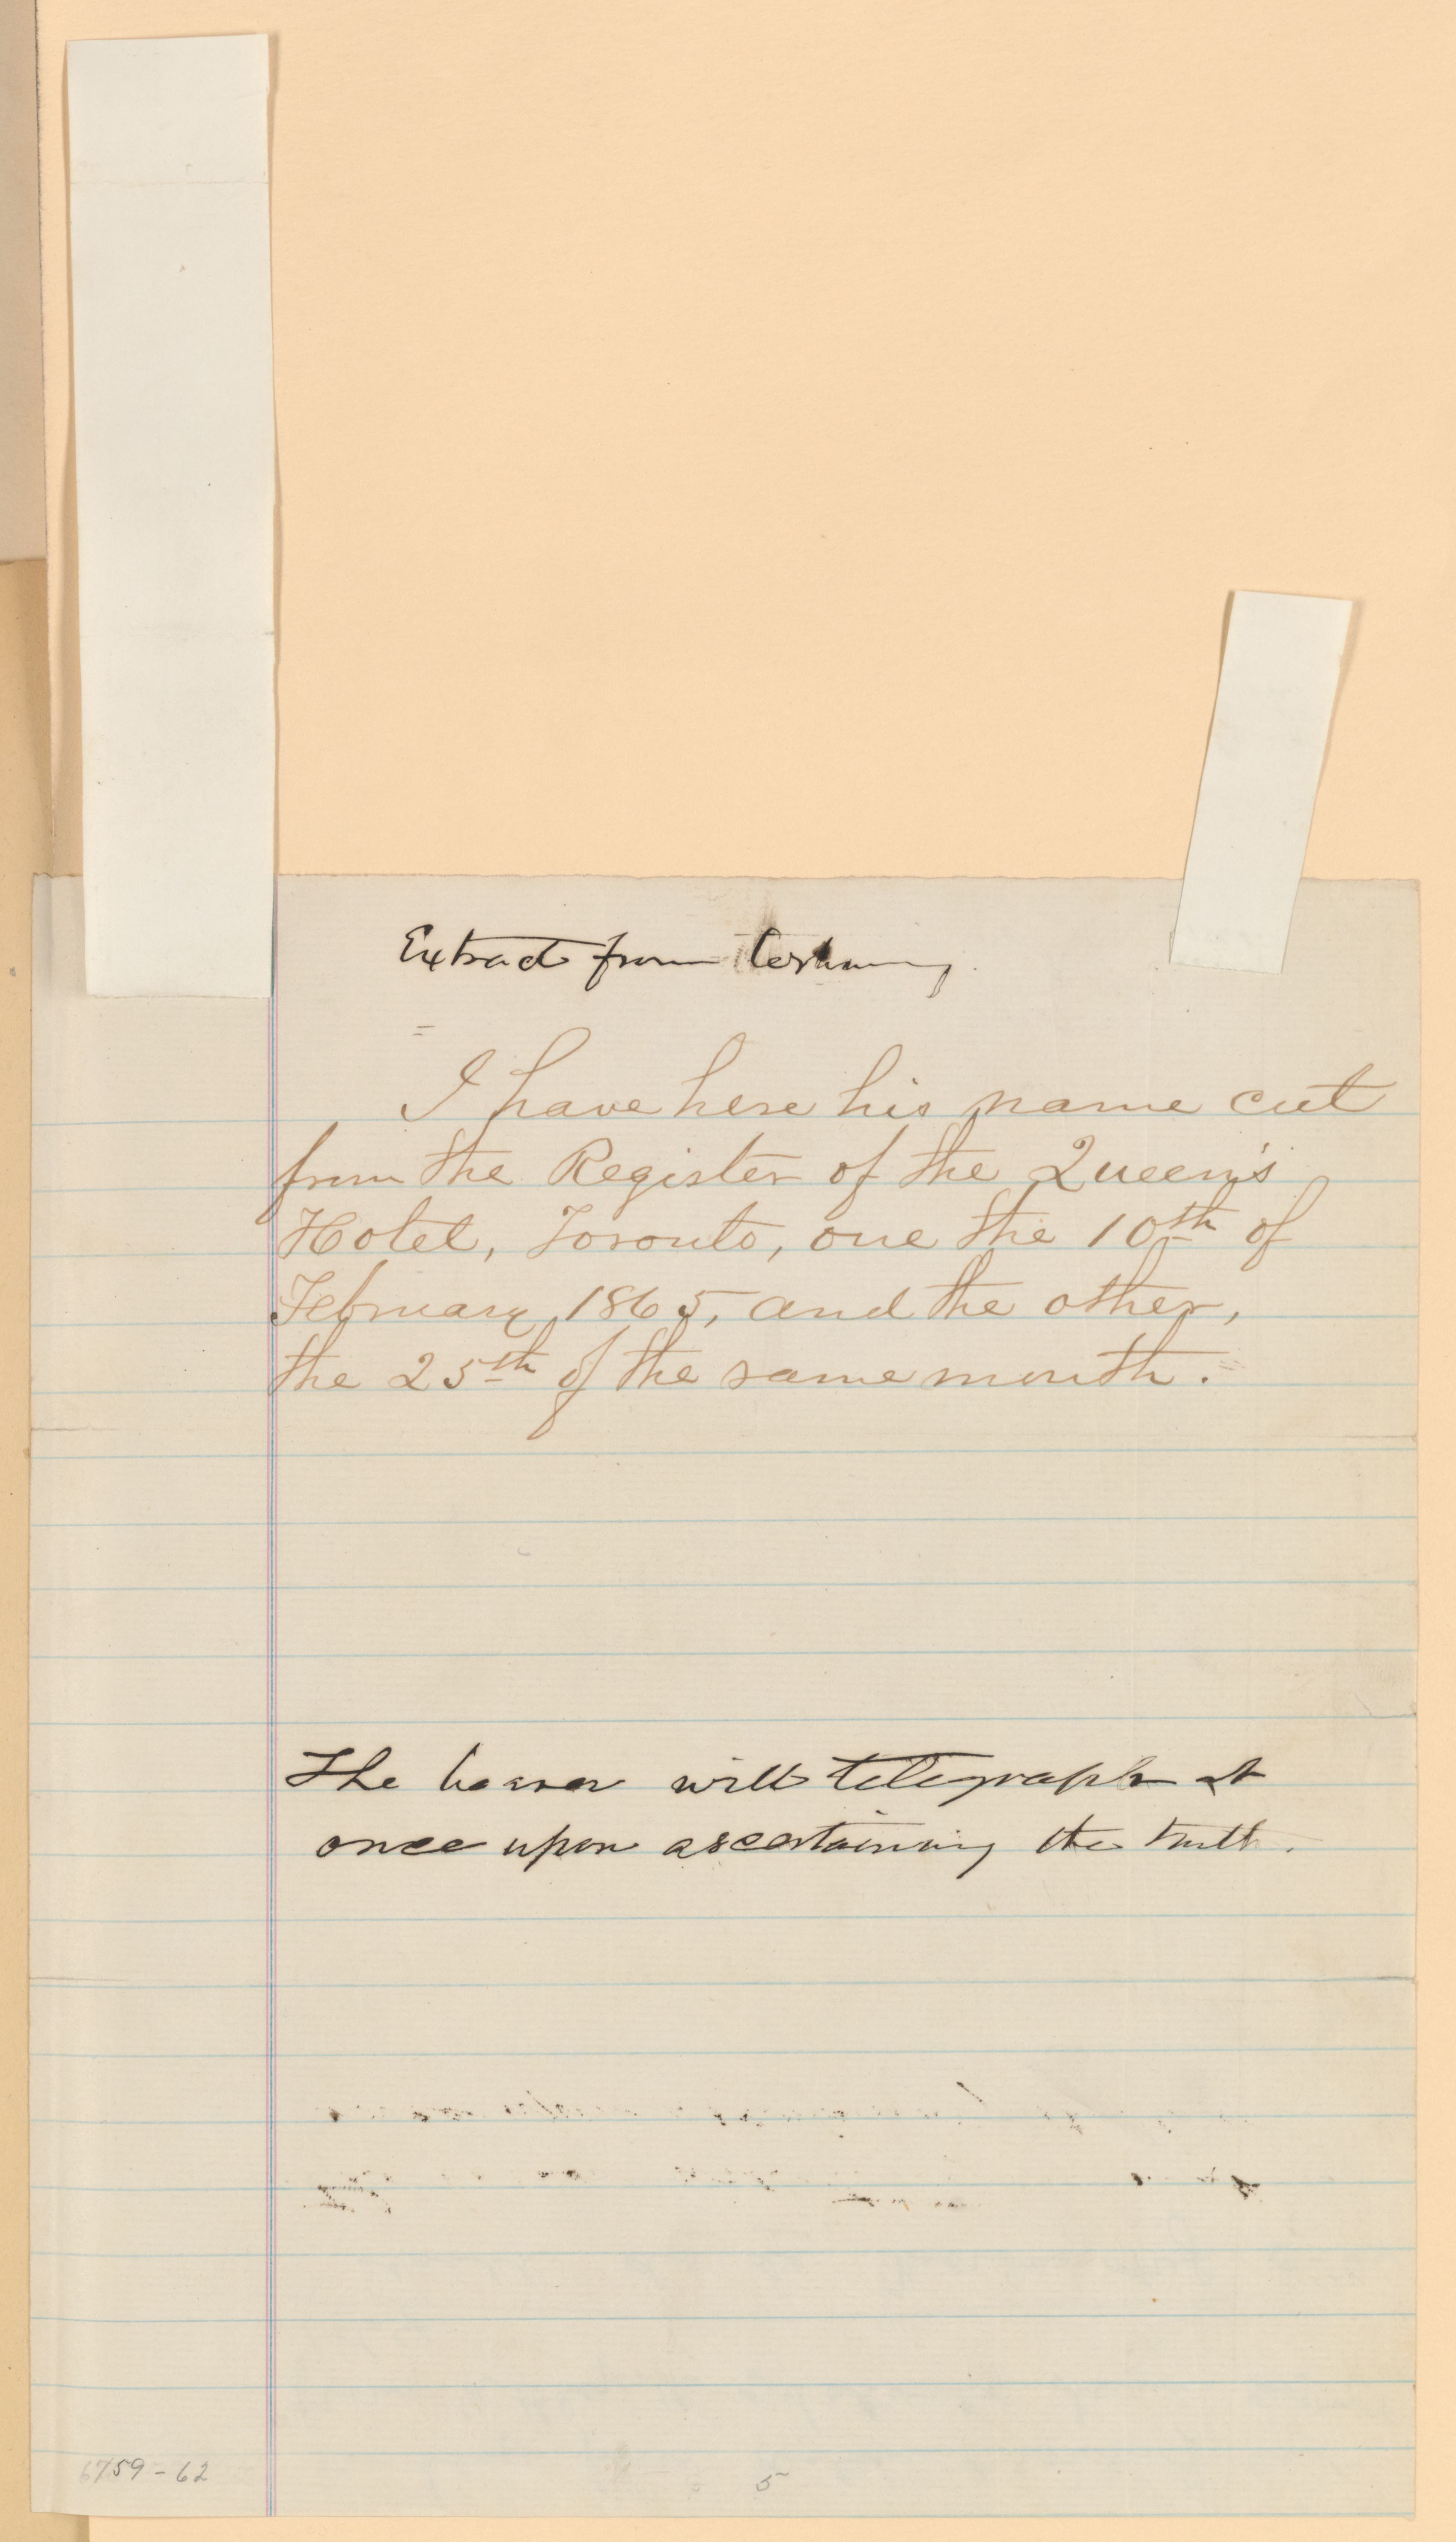 Extract from testimony
=
I have here his name cut
from the Register of the Queen's
Hotel, Toronto, one the 10th of
February 1865, and the other,
the 25th of the same month.=
The bearer will telegraph at
once upon ascertaining the truth.
6759-62
5